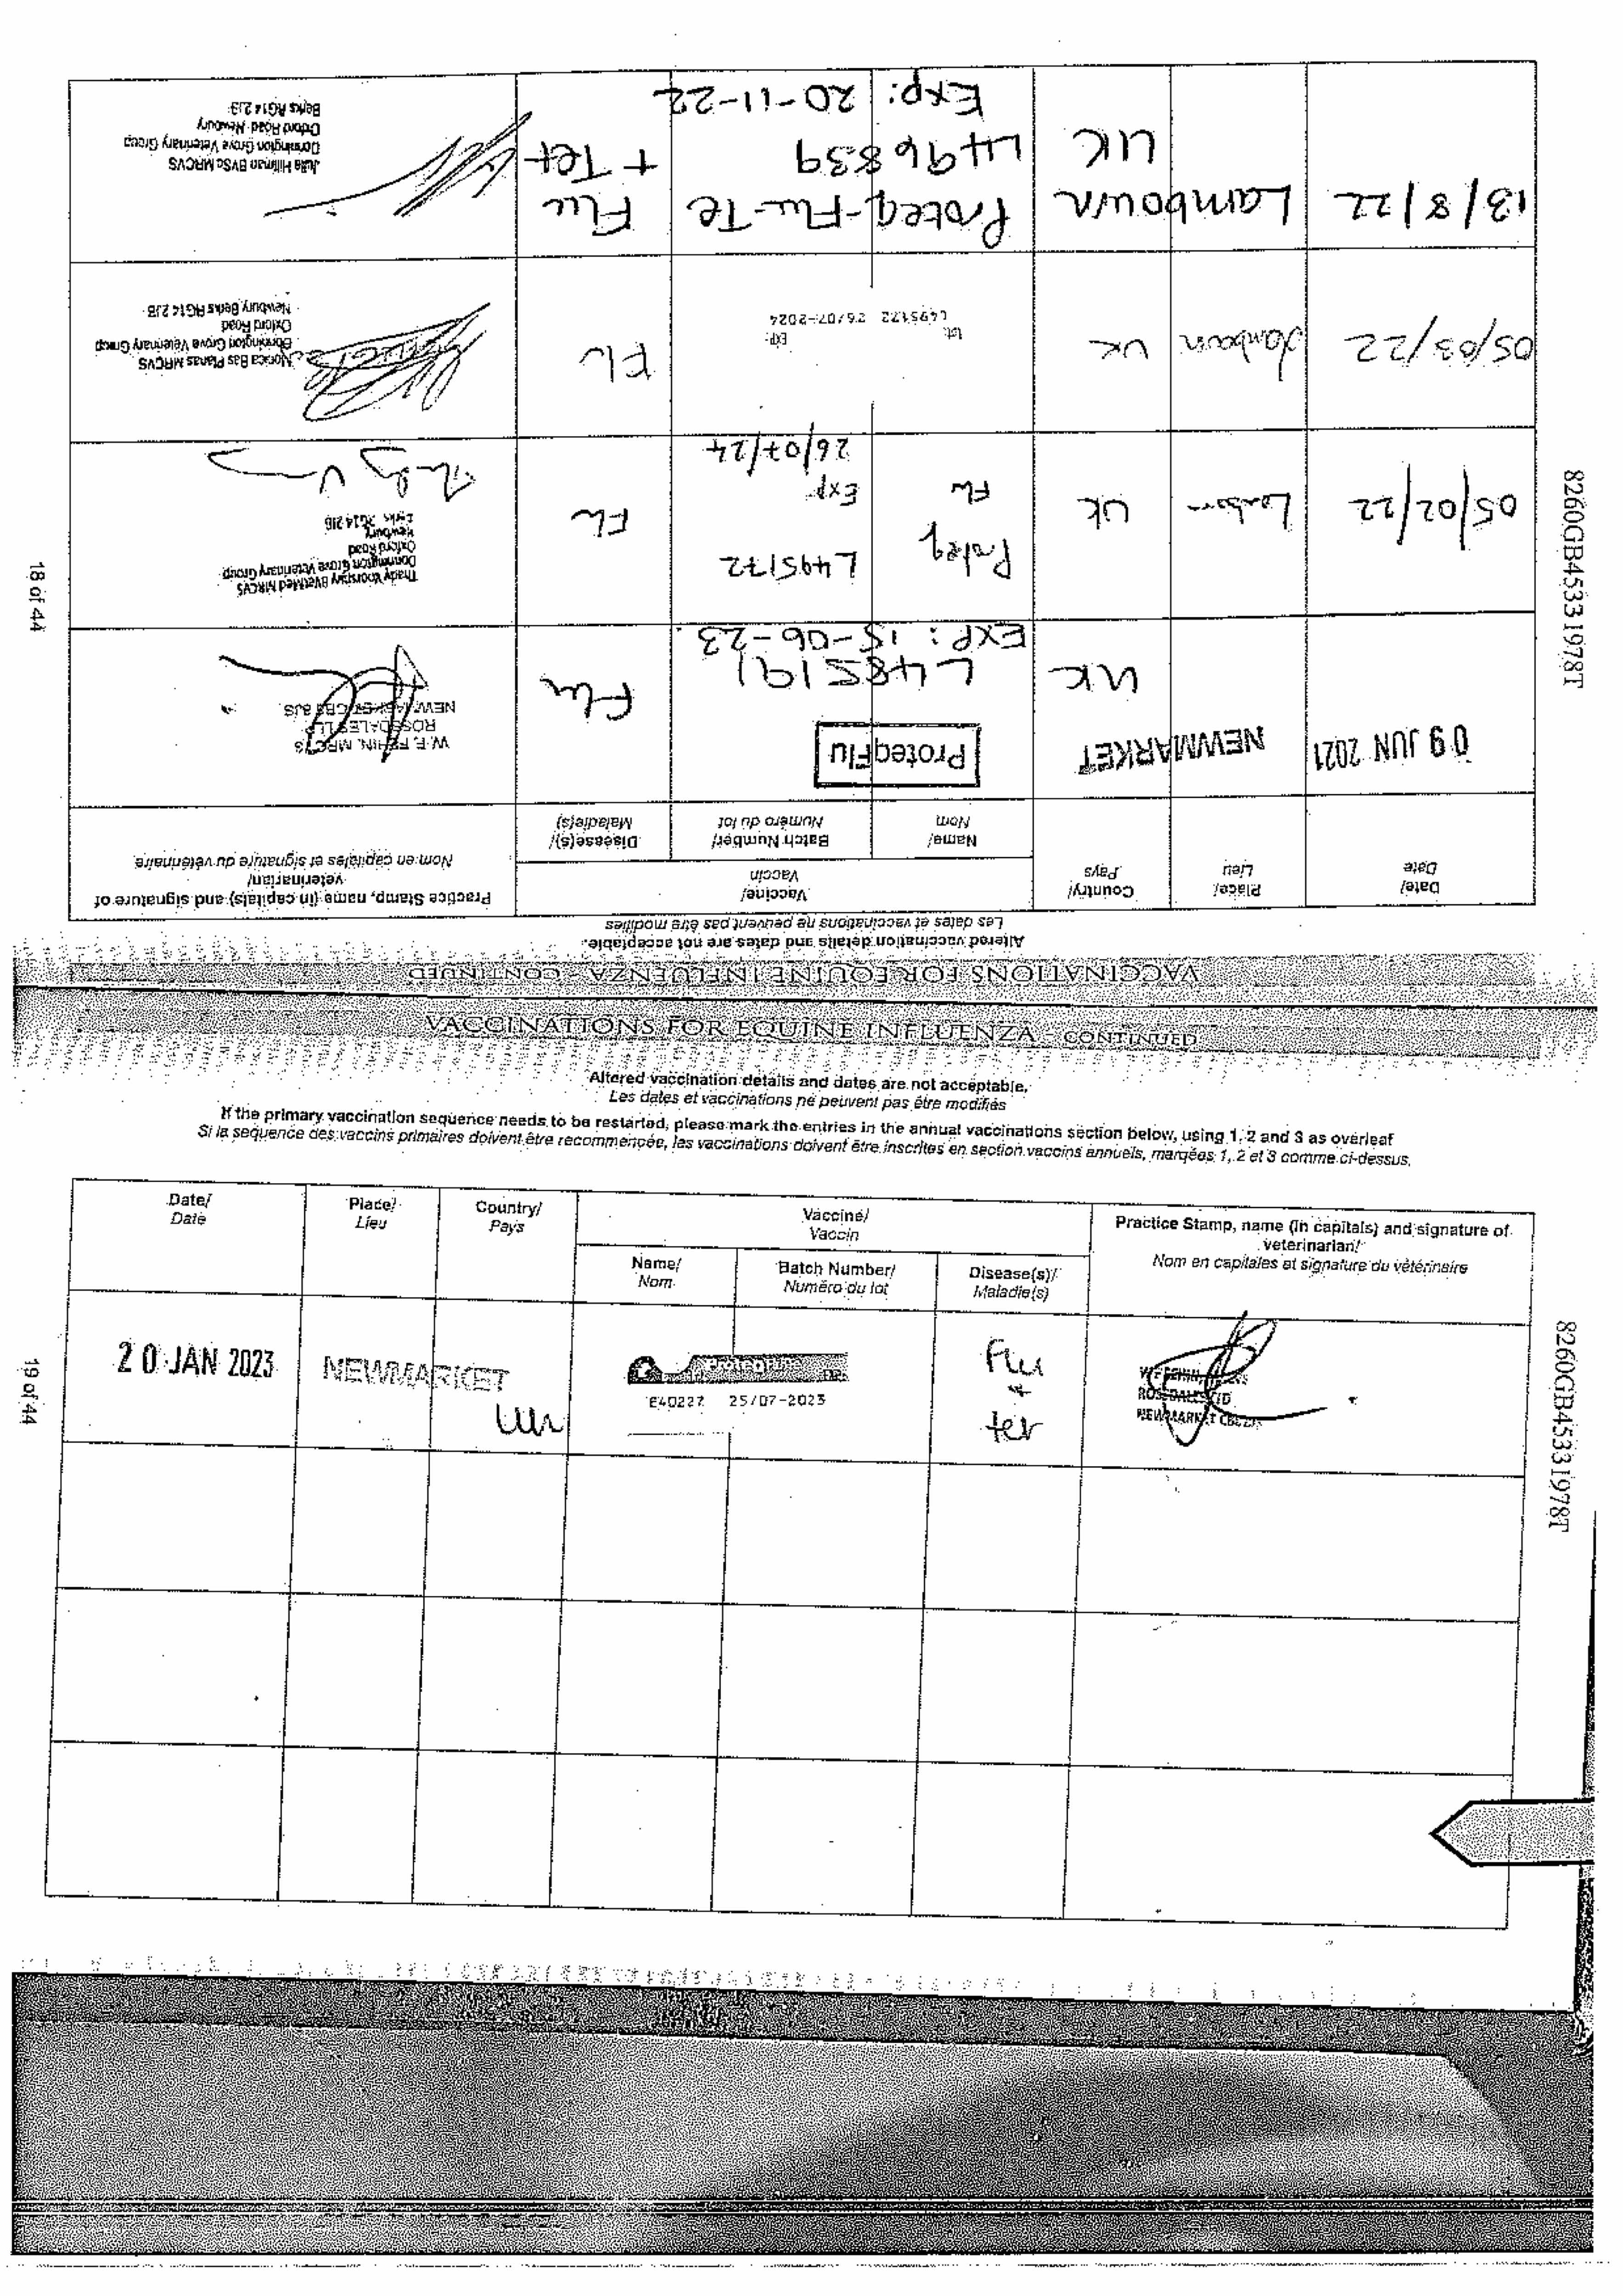 VACCINATIONS FOR EQUINE INFLUENZA - CONTINUED
Altered vaccination details and dates are not acceptable.
Les dates et vaccinations ne peuvent pas être modifiés
Date/
Date
Place/
Lieu
Country/
Pays
Vaccine/
Vaccin
Name/
Nom
Batch Number/
Numéro du lot
Disease(s)/
Maladie(s)
Practice Stamp, name (in capitals) and signature of
veterinarian/
Nom en capitales et signature du vétérinaire
09 JUN 2021
NEWMARKET
UK
ProteqFlu
L485191
EXP: 15-06-23
Flu
W.F. FEHIN, MRCVS
ROSSDALES LLP
NEWMARKET CB8 8JS
05/02/22
UK
Proteq
Flu
L495172
Exp
26/07/24
Flu
Donnington Grove Veterinary Group
Oxford Road
Newbury
Berks RG14 2JB
05/03/22
Lambourn
UK
Lot:
EXP:
L495172 26/07-2024
Flu
Monica Bas Planas MRCVS
Donnington Grove Veterinary Group
Oxford Road
Newbury Berks RG14 2JB
13/8/22
Lambourn
UK
Proteq-Flu-Te
L496839
Exp: 20-11-22
Flu
+ Tet
Julia Hillman BVSc MRCVS
Donnington Grove Veterinary Group
Oxford Road Newbury
Berks RG14 2JB
18 of 44
8260GB45331978T
VACCINATIONS FOR EQUINE INFLUENZA - CONTINUED
Altered vaccination details and dates are not acceptable,
Les dates et vaccinations ne peuvent pas être modifiés
If the primary vaccination sequence needs to be restarted, please mark the entries in the annual vaccinations section below, using 1, 2 and 3 as overleaf
Si la sequence des vaccins primaires doivent être recommencée, les vaccinations doivent être inscrites en section vaccins annuels, marqées 1, 2 et 3 comme ci-dessus.
Date/
Date
Place/
Lieu
Country/
Pays
Vaccine/
Vaccin
Name/
Nom
Batch Number/
Numéro du lot
Disease(s)/
Maladie(s)
Practice Stamp, name (in capitals) and signature of
veterinarian/
Nom en capitales et signature du vétérinaire
20 JAN 2023
NEWMARKET
UK
E40227 25/07-2023
Flu
+
tet
NEWMARKET
19 of 44
8260GB45331978T